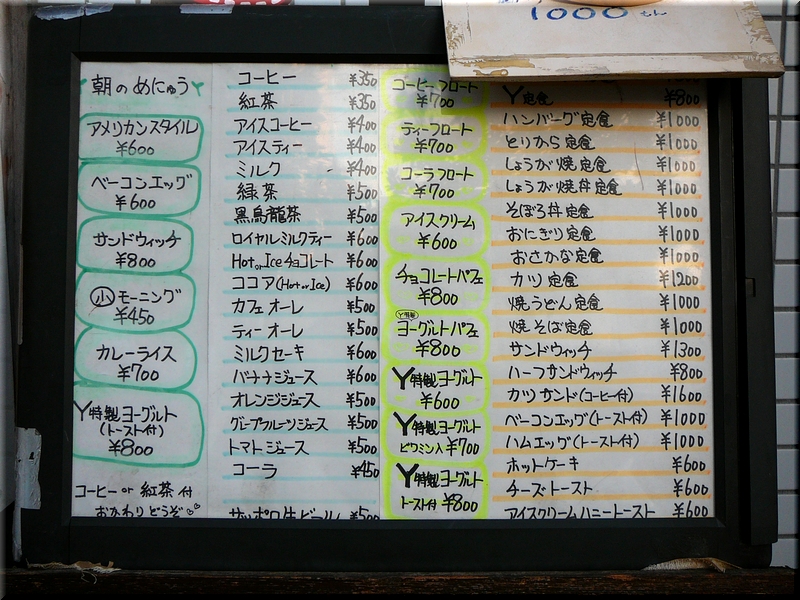 1000
朝のめにゅう
アメリカンスタイル
¥600
ベーコンエッグ
¥600
サンドウィッチ
¥800
小モーニング
¥450
カレーライス
¥700
Y特製ヨーグルト
(トースト付)
¥800
コーヒー or 紅茶付
おかわりどうぞ
コーヒー ¥350
紅茶 ¥350
アイスコーヒー ¥400
アイスティー ¥400
ミルク ¥400
緑茶 ¥500
黒烏龍茶 ¥500
ロイヤルミルクティー ¥600
Hot or Ice チョコレート ¥600
ココア(Hot or Ice) ¥600
カフェオーレ ¥500
ティーオーレ ¥500
ミルクセーキ ¥600
バナナジュース ¥600
オレンジジュース ¥500
グレープフルーツジュース ¥500
トマトジュース ¥500
コーラ ¥450
サッポロ生ビール ¥500
コーヒーフロート
¥700
ティーフロート
¥700
コーラフロート
¥700
アイスクリーム
¥600
チョコレートパフェ
¥800
ヨーグルトパフェ
¥800
Y特製ヨーグルト
¥600
Y特製ヨーグルト
ビタミン入 ¥700
Y特製ヨーグルト
トースト付 ¥800
Y定食 ¥800
ハンバーグ定食 ¥1000
とりから定食 ¥1000
しょうが焼定食 ¥1000
しょうが焼丼定食 ¥1000
そぼろ丼定食 ¥1000
おにぎり定食 ¥1000
おさかな定食 ¥1000
カツ定食 ¥1200
焼うどん定食 ¥1000
焼そば定食 ¥1000
サンドウィッチ ¥1300
ハーフサンドウィッチ ¥800
カツサンド(コーヒー付) ¥1600
ベーコンエッグ(トースト付) ¥1000
ハムエッグ(トースト付) ¥1000
ホットケーキ ¥600
チーズトースト ¥600
アイスクリームハニートースト ¥600